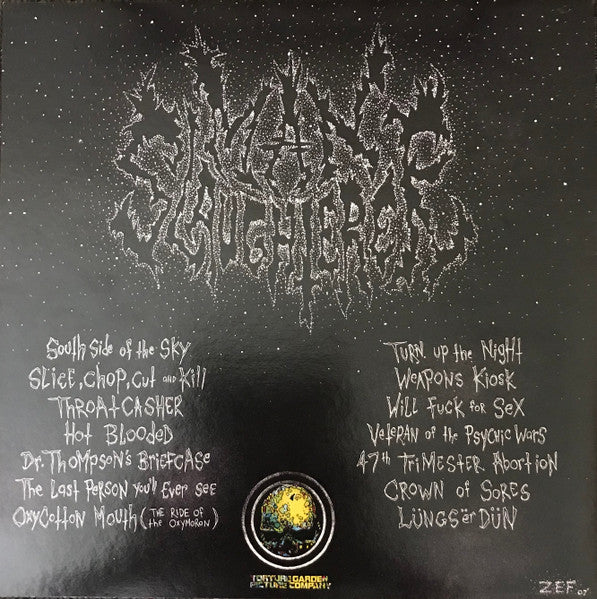 South Side of the Sky
SLiCE, Chop, Cut and Kill
THROAtCASHER
Hot BlOOdeD
Dr. ThoMpSON'S BriefCASe
The Last PersoN you'll Ever See
OxyCotton Mouth (THE RIDE OF the OXYMORON)
TURN up the NigHt
WeApons Kiosk
Will Fuck for SeX
Veteran of the Psychic Wars
47th TriMester Abortion
CROWN of SORES
LÜNGSër DÜN
TORTURE GARDEN
PICTURE COMPANY
ZEF 07